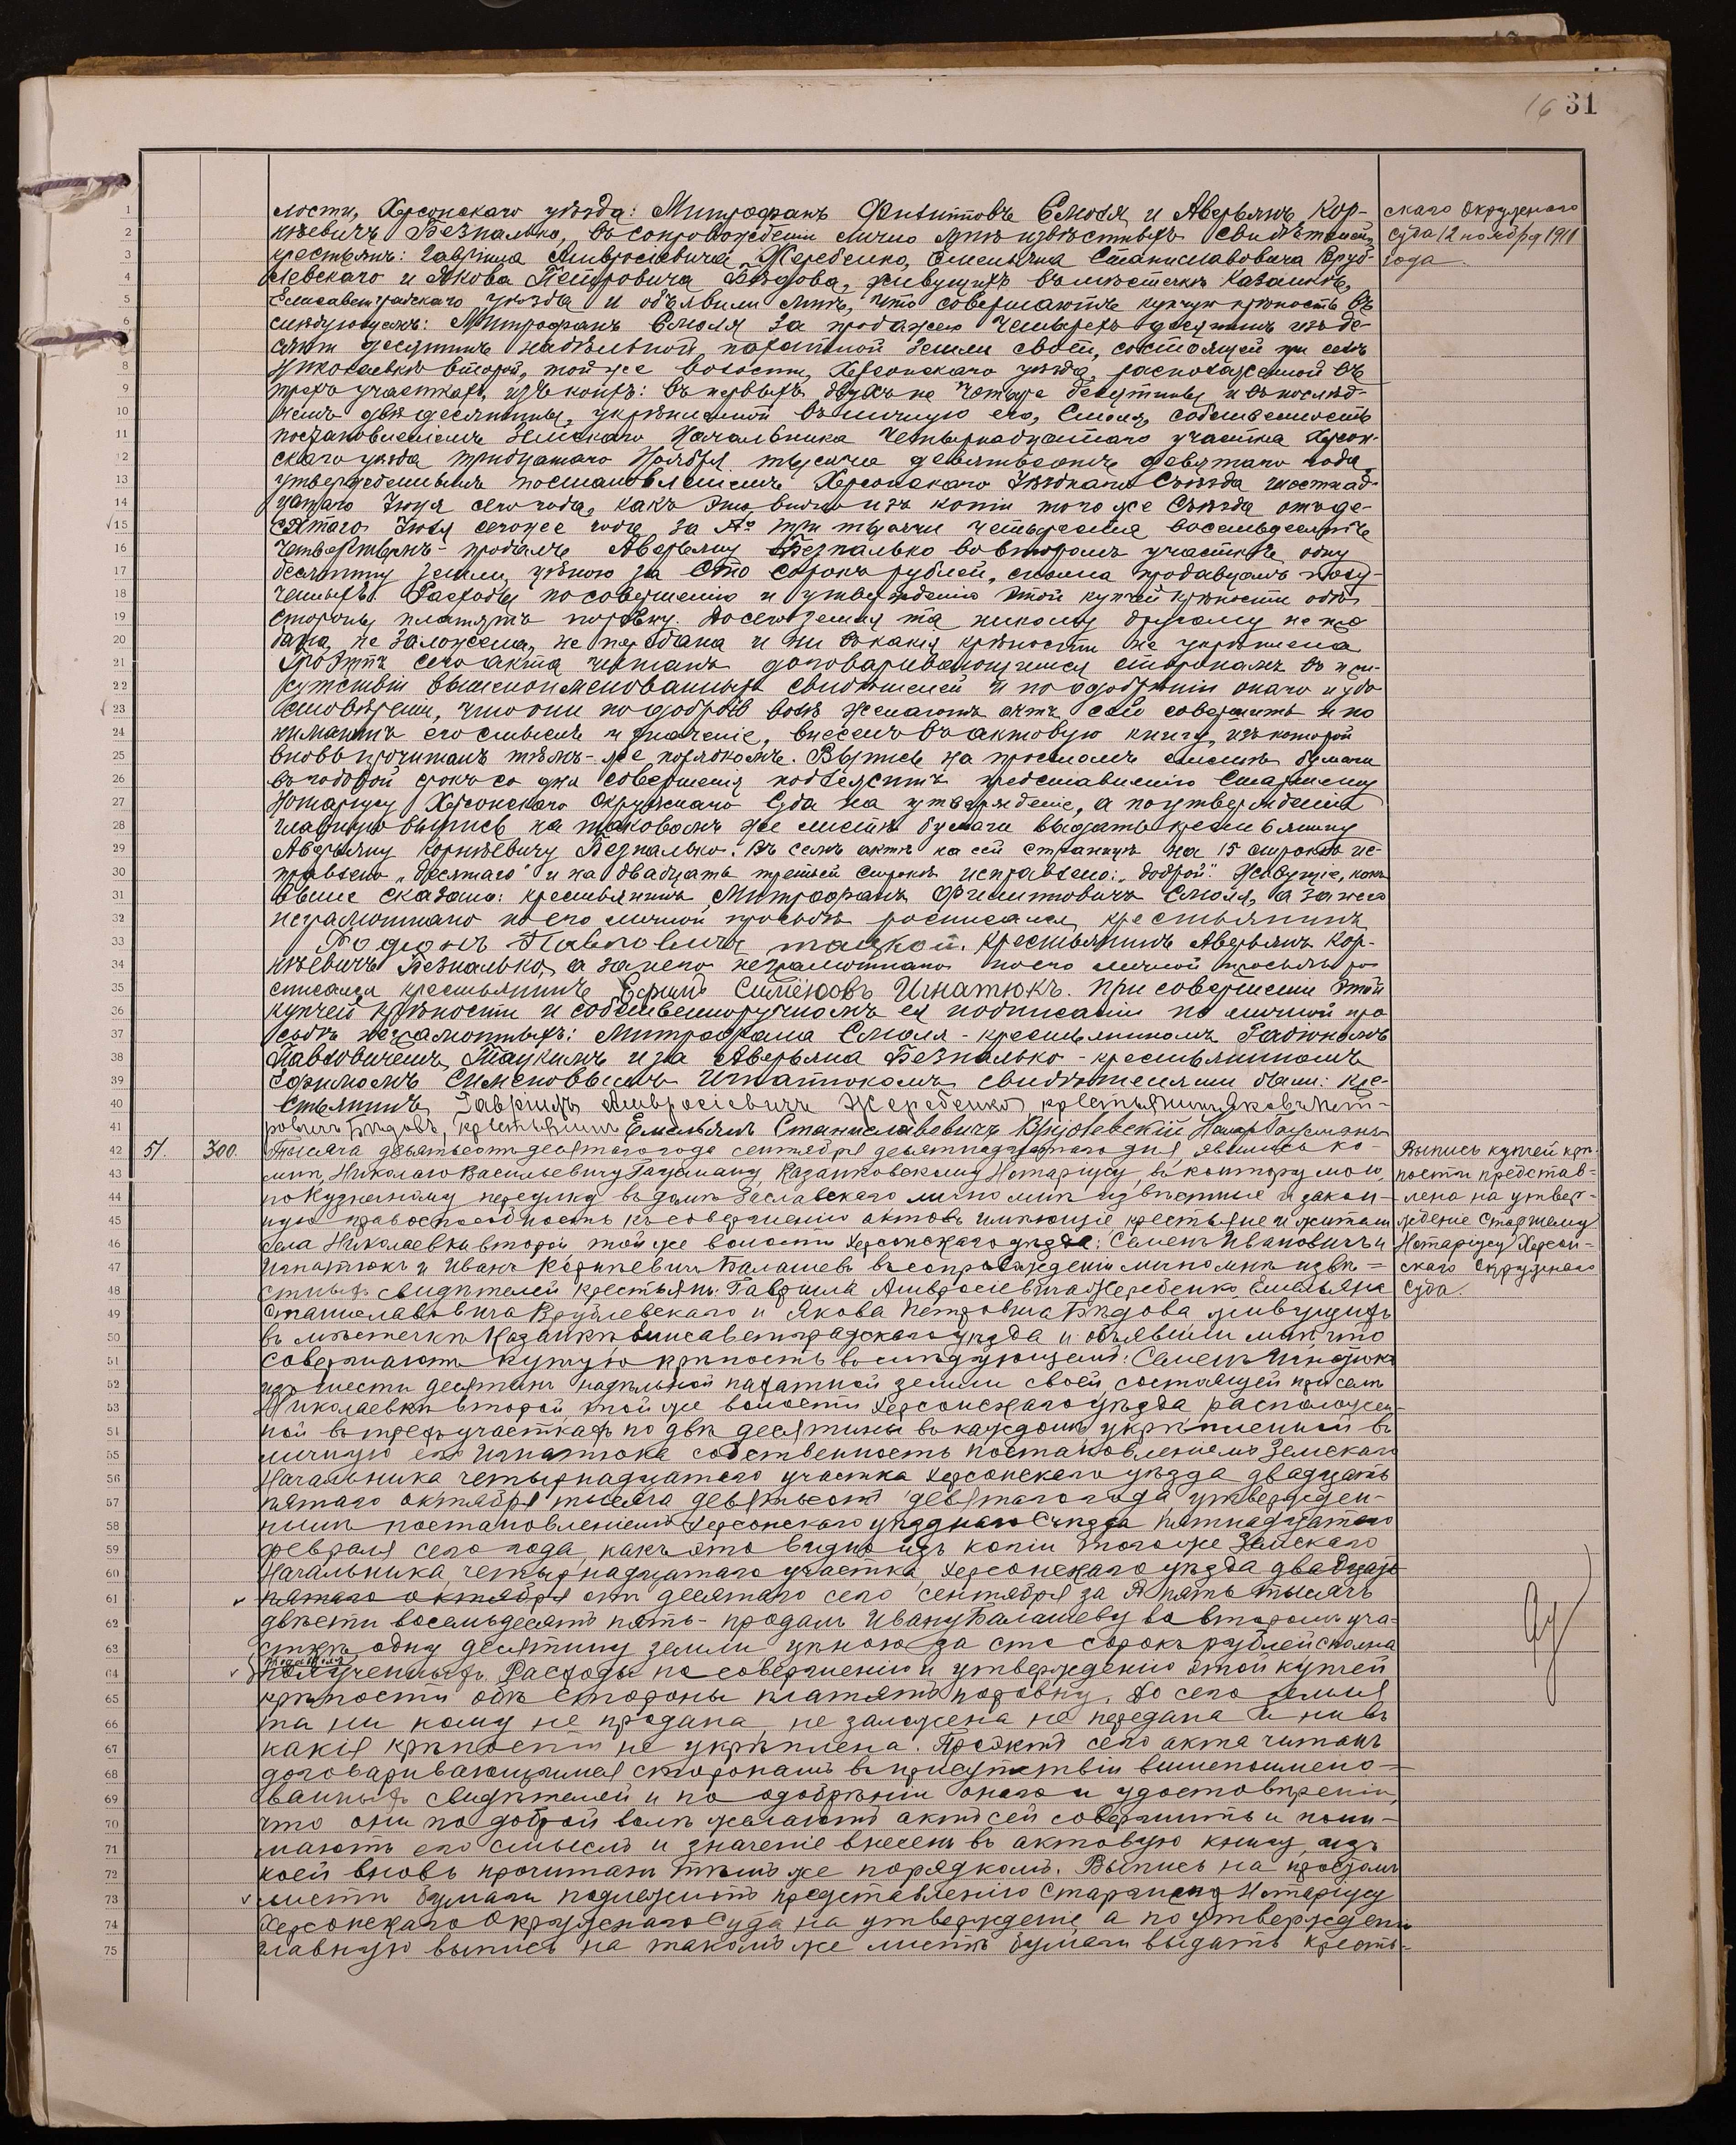 16 31
лости, Херсонскаго уѣзда: Митрофанъ Филиповъ Смоля и Аверьянъ Кор-
нѣевичъ Безпалько, въ сопровожденіи лично мнѣ извѣстныхъ свидѣтелей
крестьянъ: Гавріила Амвросіевича Жеребенко, Емельяна Станиславовича Вруб-
левскаго и Якова Петровича Бѣдова, живущихъ въ мѣстечкѣ Казанкѣ,
Елисаветградскаго уѣзда и объявили мнѣ, что совершаютъ купчую крѣпость въ
слѣдующемъ: Митрофанъ Смоля за продажею четырехъ десятинъ изъ де-
сяти десятинъ надѣльной пахатной земли своей, состоящей при селѣ
Николаевкѣ второй, той же волости, Херсонскаго уѣзда, расположенной въ
трехъ участкахъ, изъ коихъ: въ первыхъ двухъ по четыре десятины и въ послѣд-
немъ двѣ десятины, укрѣпленной въ личную его, Смоля, собственность
постановленіемъ Земскаго Начальника четырнадцатаго участка Херсон-
скаго уѣзда тридцатаго Ноября тысяча девятьсотъ девятаго года
утвержденнымъ постановленіемъ Херсонскаго Уѣзднаго Съѣзда шестнад-
цатаго Іюня сего года, какъ это видно изъ копіи того же Съѣзда отъ де-
сятаго Іюля сего же года за № три тысячи четыреста восемьдесятъ
четвертымъ - продалъ Аверьяну Безпалько во второмъ участкѣ одну
десятину земли, цѣною за сто сорокъ рублей, сполна продавцомъ полу-
ченныхъ. Расходы по совершенію и утвержденію этой купчей крѣпости обѣ
стороны платятъ поровну. До сего земля та никому другому не про
дана, не заложена, не передана и ни въ какія крѣпости не укрѣплена
Проэктъ сего акта читанъ договаривающимся сторонамъ въ при-
сутствіи вышепоименованныхъ свидѣтелей и по одобреніи онаго и удо
стовѣреніи, что они по доброй волѣ желаютъ актъ сей совершить и по
нимаютъ его смыслъ и значеніе, внесенъ въ актовую книгу, изъ которой
вновь прочитанъ тѣмъ-же порядкомъ. Выпись на простомъ листѣ бумаги
въ годовой срокъ со дня совершенія подлежитъ представленію Старшему
Нотаріусу Херсонскаго Окружнаго Суда на утвержденіе, а по утвержденіи
главную выпись на таковомъ же листѣ бумаги выдать крестьянину
Аверьяну Корнѣевичу Безпалько. Въ семъ актѣ на сей страницѣ на 15 строкѣ ис-
правлено „десятаго" и на двадцать третьей строкѣ исправлено: „доброй". Живущіе, какъ
выше сказано: крестьянинъ Митрофанъ Филиповичъ Смоля, а за него
неграмотнаго по его личной просьбѣ росписался крестьянинъ
Родіонъ Павловичъ Тацкой. Крестьянинъ Аверьянъ Кор-
нѣевичъ Безпалько, а за него неграмотнаго по его личной просьбѣ ро
списался крестьянинъ Ефимъ Симёновъ Игнатюкъ. При совершеніи этой
купчей крѣпости и собственноручномъ ея подписаніи по личной про
сьбѣ неграмотныхъ: Митрофана Смоля - крестьяниномъ Радіономъ
Павловичемъ Тацкимъ и за Аверьяна Безпалько - крестьяниномъ
Ефимомъ Сименовымъ Игнатюкомъ свидѣтелями были: кре-
стьянинъ Гавріилъ Амвросіевичъ Жеребенко, крестьянинъ Яковъ Пет-
ровичъ Бѣдовъ, крестьянинъ Емельянъ Станиславовичъ Врублевскій
51. 300. Тысяча девятьсотъ десятаго года сентября девятнадцатаго дня явились ко
мнѣ, Николаю Васильевичу Гаусману, Казанковскому Нотаріусу, въ контору мою,
по Кузнечному переулку въ домѣ Заславскаго лично мнѣ извѣстные и закон-
ную правоспособность къ совершенію актовъ имѣющіе крестьяне и жители
села Николаевки второй, той же волости Херсонскаго уѣзда: Семенъ Ивановичъ
Игнатюкъ и Иванъ Корнѣевичъ Балашевъ въ сопровожденіи лично мнѣ извѣ-
стныхъ свидѣтелей крестьянъ: Гавріила Амвросіевича Жеребенко, Емельяна
Станиславовича Врублевскаго и Якова Петровича Бѣдова живущихъ
въ мѣстечкѣ Казанкѣ Елисаветградскаго уѣзда и объявили мнѣ, что
совершаютъ купчую крѣпость въ слѣдующемъ: Семенъ Игнатюкъ
изъ шести десятинъ надѣльной пахатной земли своей, состоящей при селѣ
Николаевкѣ второй, той же волости Херсонскаго уѣзда расположен-
ной въ трехъ участкахъ по двѣ десятины въ каждомъ, укрѣпленной въ
личную его Игнатюка собственность постановленіемъ Земскаго
Начальника четырнадцатаго участка Херсонскаго уѣзда двадцать
пятаго октября тысяча девятьсотъ девятаго года утвержден-
нымъ постановленіемъ Херсонскаго уѣзднаго Съѣзда пятнадцатаго
февраля сего года, какъ это видно изъ копіи того же Земскаго
Начальника четырнадцатаго участка Херсонскаго уѣзда двадцать
пятаго октября отъ десятаго сего сентября за № пять тысячъ
двѣсти восемьдесятъ пять - продалъ Ивану Балашеву во второмъ уча-
сткѣ одну десятину земли цѣною за сто сорокъ рублей сполна
полученныхъ. Расходы по совершенію и утвержденію этой купчей
крѣпости обѣ стороны платятъ поровну. До сего земля
та ни кому не продана, не заложена не передана и ни въ
какія крѣпости не укрѣплена. Проэктъ сего акта читанъ
договаривающимся сторонамъ въ присутствіи вышепоимено-
ванныхъ свидѣтелей и по одобреніи онаго и удостовѣреніи,
что они по доброй волѣ желаютъ актъ сей совершить и пони-
маютъ его смыслъ и значеніе внесенъ въ актовую книгу, изъ
коей вновь прочитанъ тѣмъ же порядкомъ. Выпись на простомъ
листѣ бумаги подлежитъ представленію Старшему Нотаріусу
Херсонскаго Окружнаго Суда на утвержденіе, а по утвержденіи
главную выпись на такомъ же листѣ бумаги выдать кресть-
скаго Окружнаго
Суда 12 ноября 1911
года
Выпись купчей крѣ-
пости представ-
лена на утвер-
жденіе Старшему
Нотаріусу Херсон-
скаго Окружнаго
Суда.